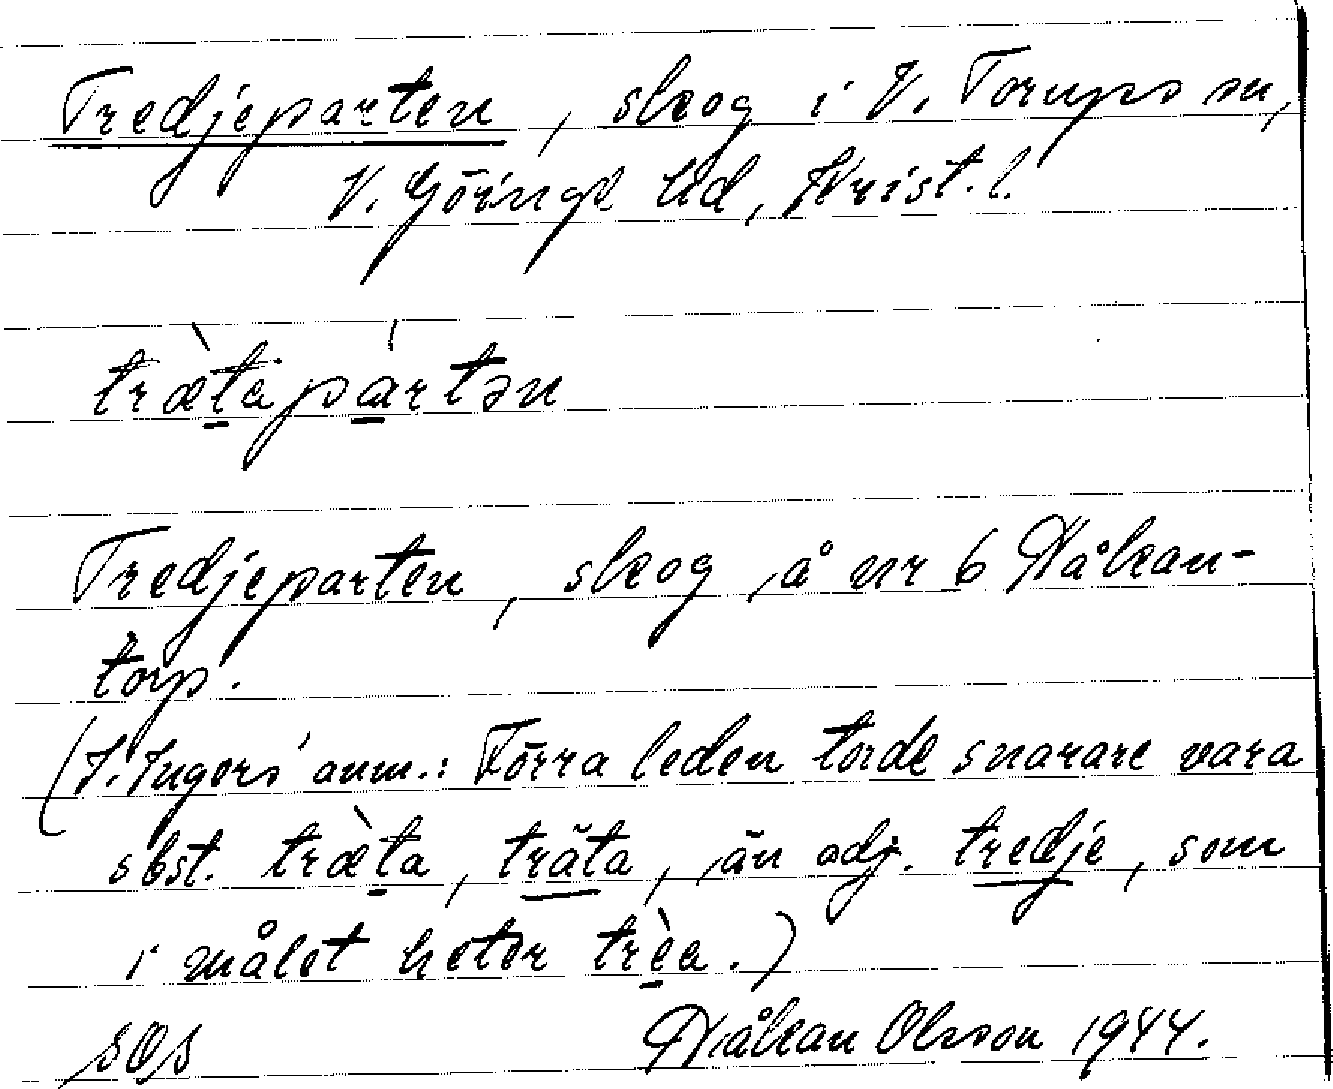 Tredjeparten, skog i V. Torups sn,
V. Göinge hd, Krist. l.
træ̀tapártən
Tredjeparten, skog å nr 6 Håkan-
torp.
(I. Ingers' anm.: Förra leden torde snarare vara
sbst. træ̀ta, träta, än adj. tredje, som
i målet heter trèa.)
SOS Håkan Olsson 1944.